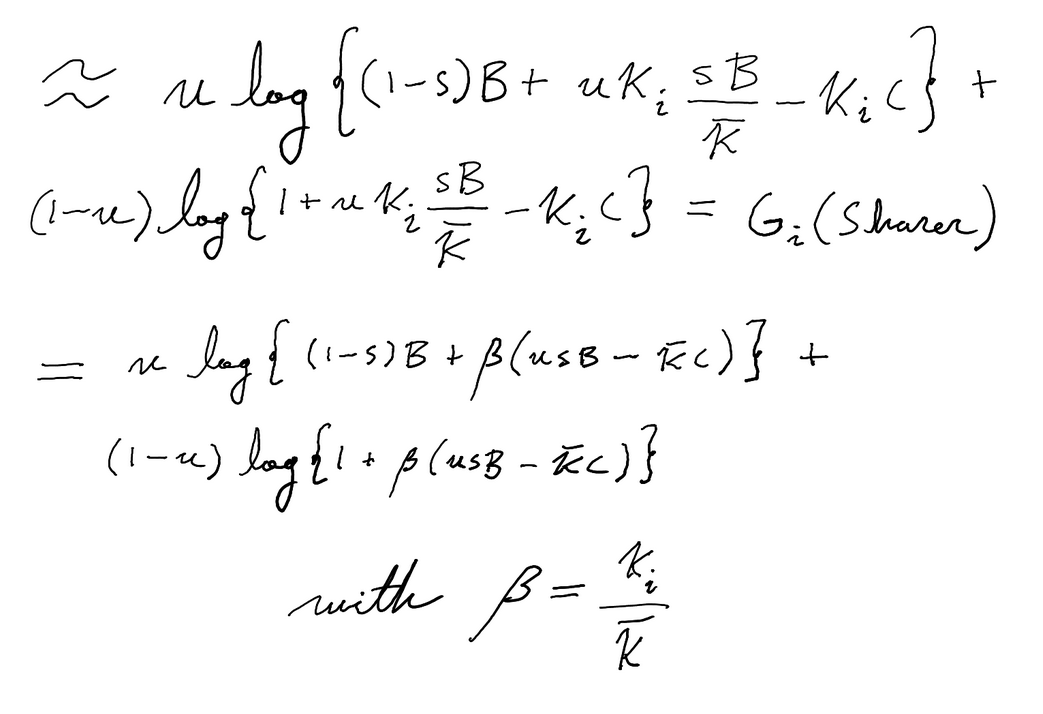 ≈ u log{(1-s)B + uK_i sB/K̄ - K_i C} +
(1-u) log{1 + u K_i sB/K̄ - K_i C} = G_i(Sharer)
= u log{(1-s)B + β(usB - K̄C)} +
(1-u) log{1 + β(usB - K̄C)}
with β = K_i/K̄